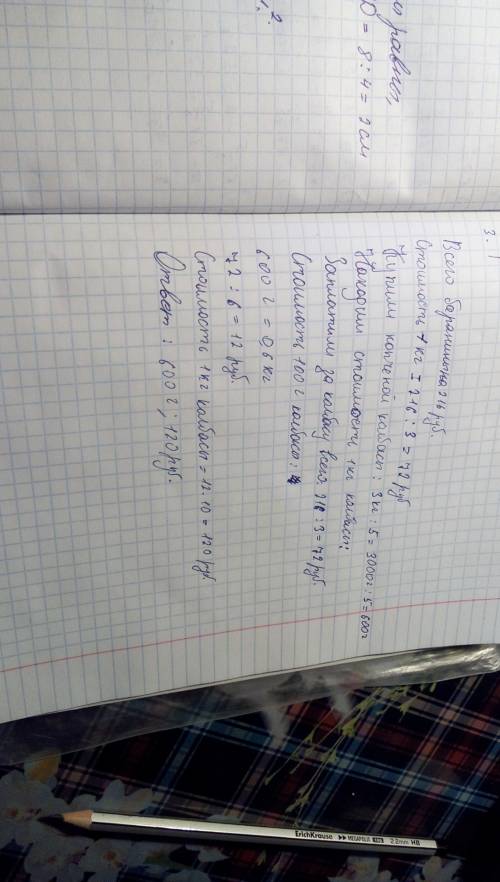 равны,
= 8 : 4 = 2 см
2.
3.
Всего баранина 216 руб.
Стоимость 1 кг = 216 : 3 = 72 руб
Купили копченой колбасы: 3 кг : 5 = 3000 г : 5 = 600 г
Находим стоимость 1 кг колбасы:
Заплатили за колбасу всего 216 : 3 = 72 руб.
Стоимость 100 г колбасы:
600 г = 0,6 кг
72 : 6 = 12 руб.
Стоимость 1 кг колбасы = 12 · 10 = 120 руб
Ответ: 600 г; 120 руб.
ErichKrause MEGAPOLIS 2.8mm HB